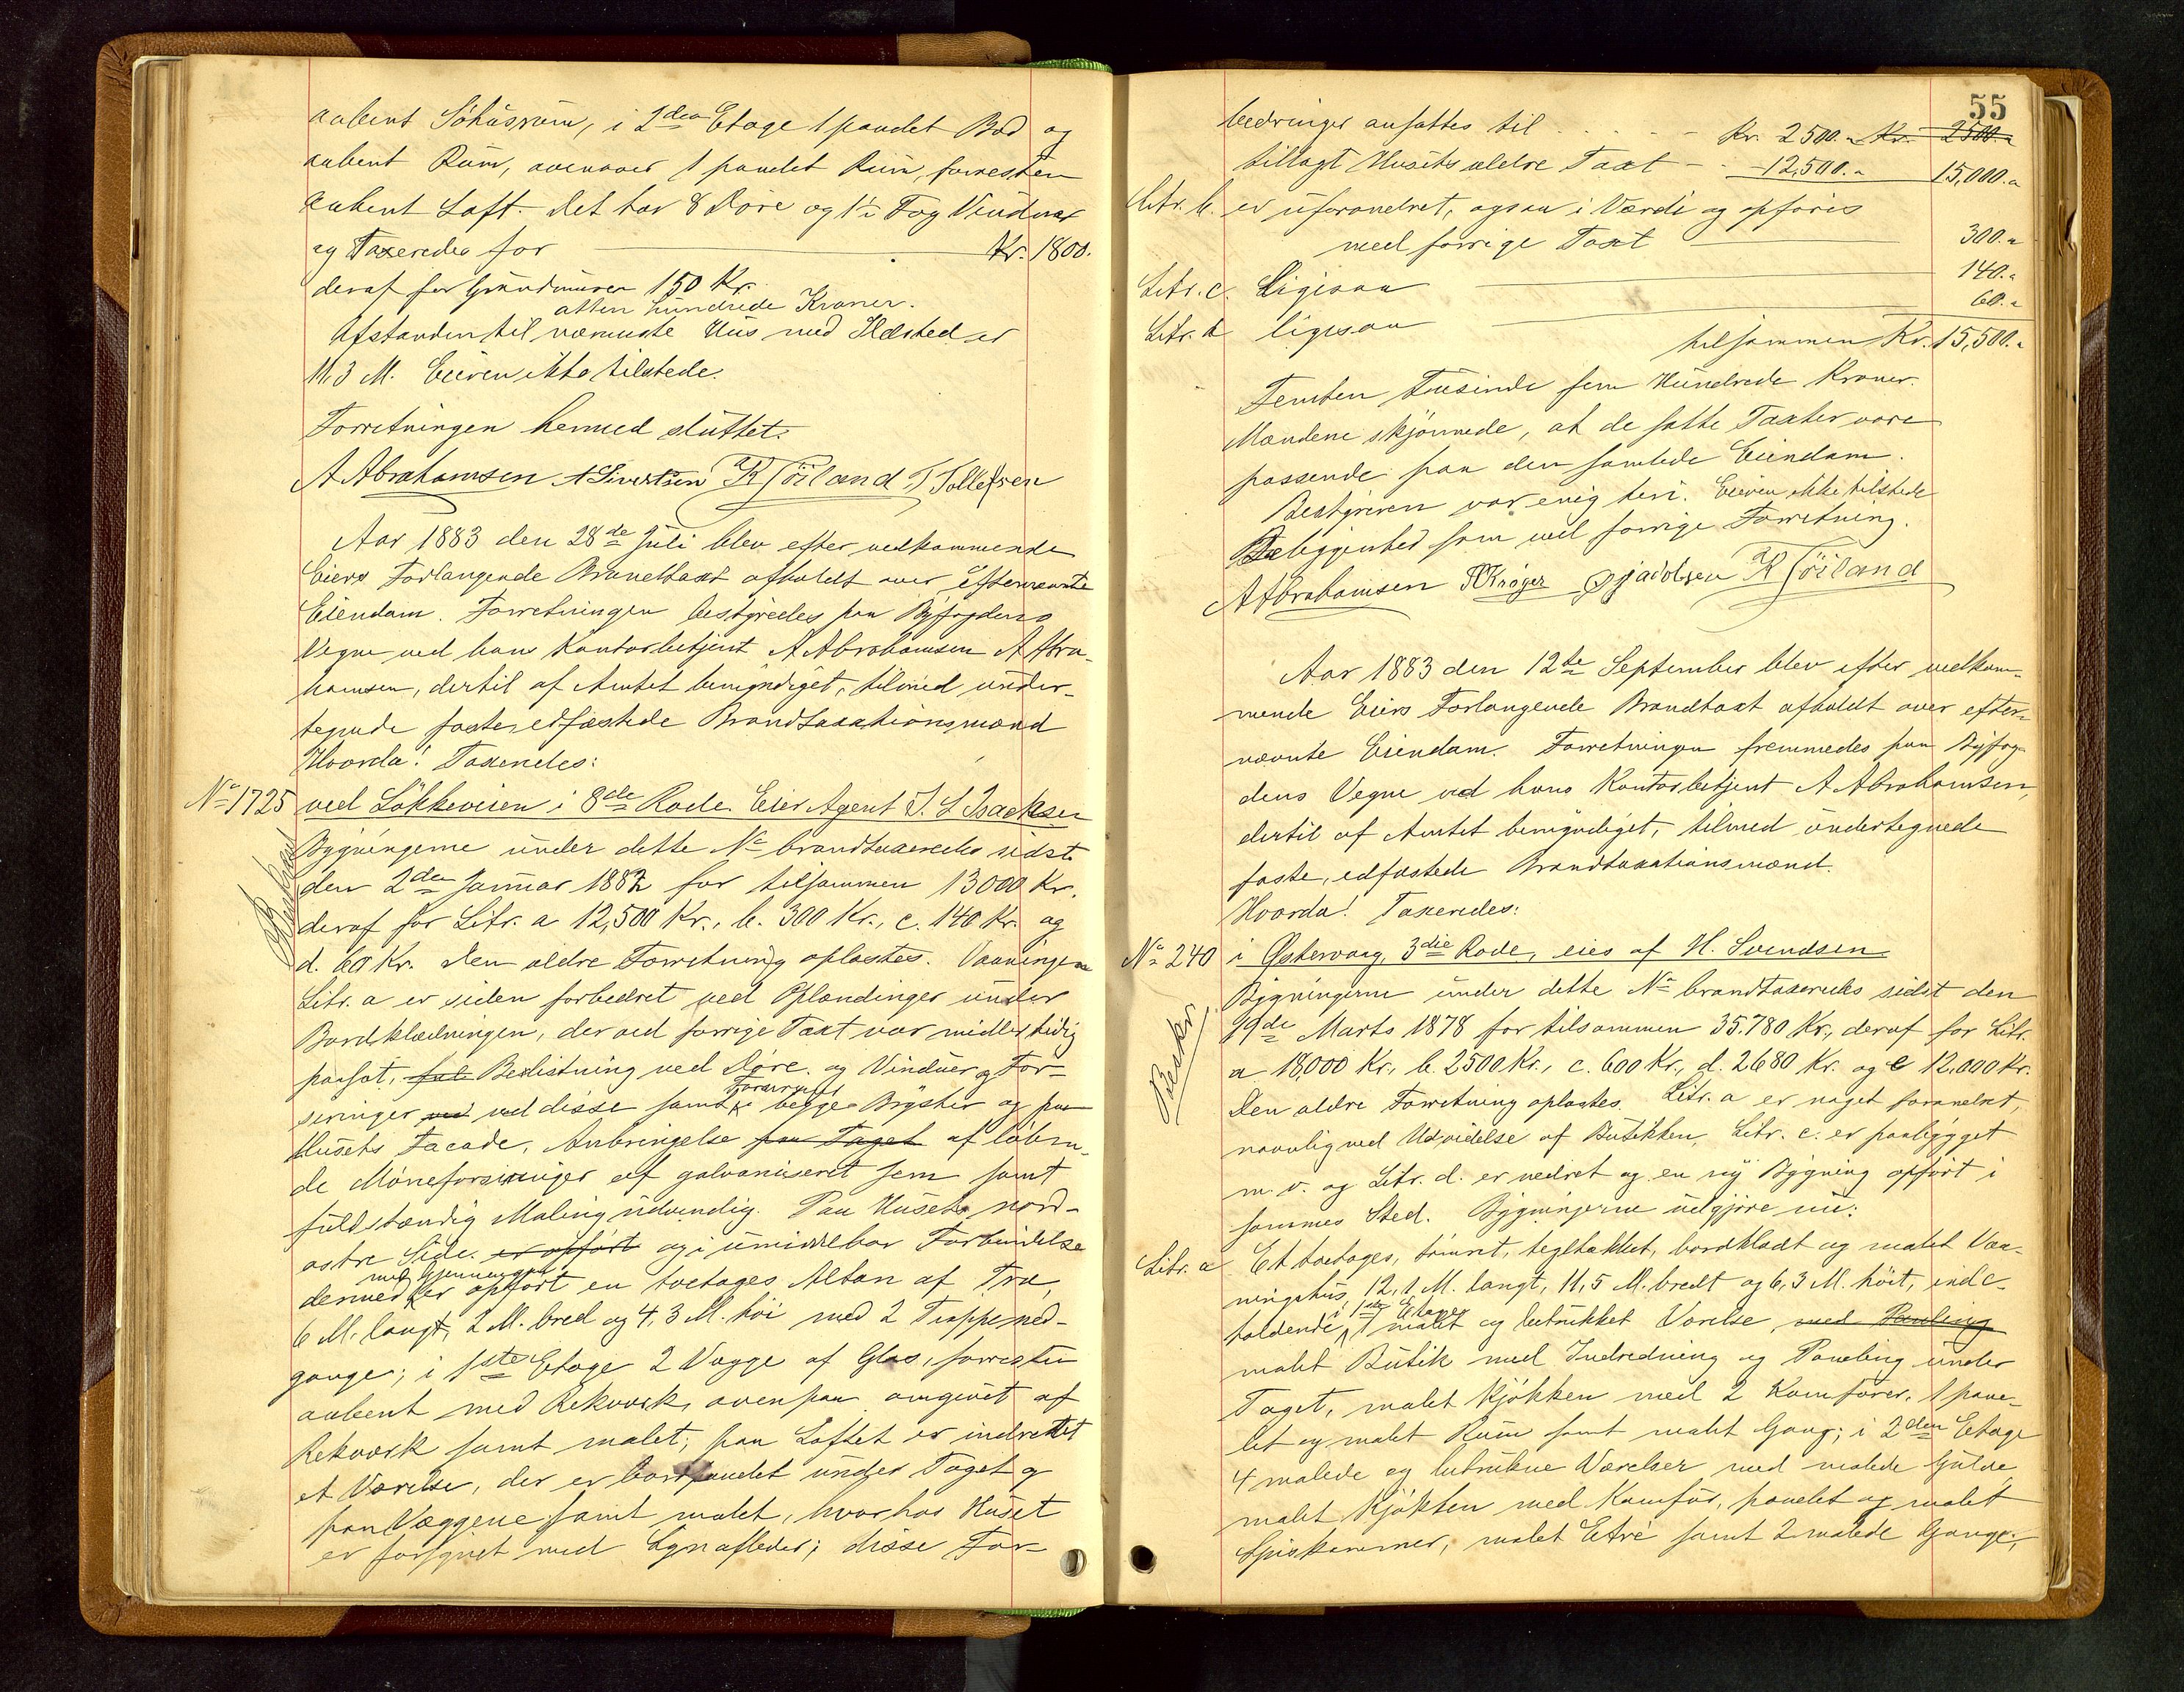 aabent Söhusrum, i 2den Etage 1 panelet Bod og
aabent Rum, ovenover 1 panelet Rum, forresten
aabent Loft. Det har 8 Döre og 1½ Fag Vinduer
og Taxeredes for Kr. 1800.
deraf for Grundmuren 150 Kr.
atten hundrede Kroner.
Afstanden til nærmeste Hus med Ildsted er
11,3 M. Eieren ikke tilstede.
Forretningen hermed sluttet.
A Abrahamsen A Sivertsen R Töiland T Tollefsen
Aar 1883 den 28de Juli blev efter vedkommende
Eiers Forlangende Brandtaxt afholdt over efternævnte
Eiendom. Forretningen bestyredes paa Byfogdens
Vegne ved hans Kontorbetjent A Abrahamsen A Abra-
hamsen, dertil af Amtet bemyndiget, tilmed under-
tegnede faste edfæstede Brandtaxationsmænd
Hvorda! Taxeredes:
No 1725 ved Lökkeveien i 8de Rode Eier Agent I. L Isachsen
Beskrevet
Bygningerne under dette No brandtaxeredes sidst
den 2den Januar 1882 for tilsammen 13000 Kr.
deraf for Litr. a 12,500 Kr., b. 300 Kr., c. 140 Kr. og
d. 60 Kr. Den ældre Forretning oplæstes. Vaaningen
Litr. a er siden forbedret ved Oplændinger under
Bordklædningen, der ved forrige Taxt var midlertidig
paasat, Beslistning ved Döre og Vinduer og For-
siringer ved disse samt Forsiringer i begge Bryster og paa
Husets Facade, Anbringelse paa Taget af löben-
de Möneforsiringer af galvaniseret Jern samt
fuldstændig Maling udvendig. Paa Husets nord-
östre Side er opfört og i umiddelbar Forbindelse
dermed med Gjennemgang er opfört en toetages Altan af Træ,
6 M. langt, 2 M. bred og 4,3 M. höi med 2 Trappened-
gange; i 1ste Etage 2 Vægge af Glas, forresten
aabent med Rekværk, ovenpaa omgivet af
Rekværk samt malet; paa Loftet er indrettet
et Værelse, der er bordpanelet under Taget og
paa Væggene samt malet, hvorhos Huset
er forsynet med Lynafleder; disse For-
55
bedringer ansattes til Kr. 2500.- Kr. 2500.-
tillagt Husets ældre Taxt - 12,500.- 15,000.-
Litr. b. er uforandret, ogsaa i Værdi og opföres
med forrige Taxt 300.-
Litr. c. Ligesaa 140.-
Litr. d ligesaa 60.-
tilsammen Kr. 15,500.-
Femten Tusinde fem Hundrede Kroner.
Mændene skjönnede, at de satte Taxter vare
passende paa den samlede Eiendom.
Bestyreren var enig heri. Eieren ikke tilstede
Beliggenhed som ved forrige Forretning.
A Abrahamsen H Kröger O Jacobsen R Töiland
Aar 1883 den 12te September blev efter vedkom-
mende Eiers Forlangende Brandtaxt afholdt over efter-
nævnte Eiendom. Forretningen fremmedes paa Byfog-
dens Vegne ved hans Kontorbetjent A Abrahamsen,
dertil af Amtet bemyndiget, tilmed undertegnede
faste, edfæstede Brandtaxationsmænd.
Hvorda! Taxeredes:
No 240 i Østervaag, 3die Rode, eies af H. Svendsen
Beskr.
Bygningerne under dette No brandtaxeredes sidst den
19de Marts 1878 for tilsammen 35.780 Kr., deraf for Litr.
a 18,000 Kr., b. 2500 Kr., c. 600 Kr., d. 2680 Kr. og e 12.000 Kr.
Den ældre Forretning oplæstes. Litr. a er noget forandret,
navnlig ved Udvidelse af Butikken, Litr. c. er paabygget
m. v. og Litr. d. er nedrevet og en ny Bygning opfört i
sammes Sted. Bygningerne udgjöre nu:
Litr. a Et toetages, tömret, tegltækket, bordklædt og malet Vaa-
ningshus, 12,1 M. langt, 11,5 M. bredt og 6,3 M. höit, inde-
holdende i 1ste Etage 1 malet og betrukket Værelse, med Paneling
malet Butik med Indredning og Paneling under
Taget, malet Kjökken med 2 Komfurer, 1 pane-
let og malet Rum samt malet Gang; i 2den Etage
4 malede og betrukne Værelser med malede Gulve,
malet Kjökken med Komfur, panelet og malet
Spiskammer, malet Etré samt 2 malede Gange;